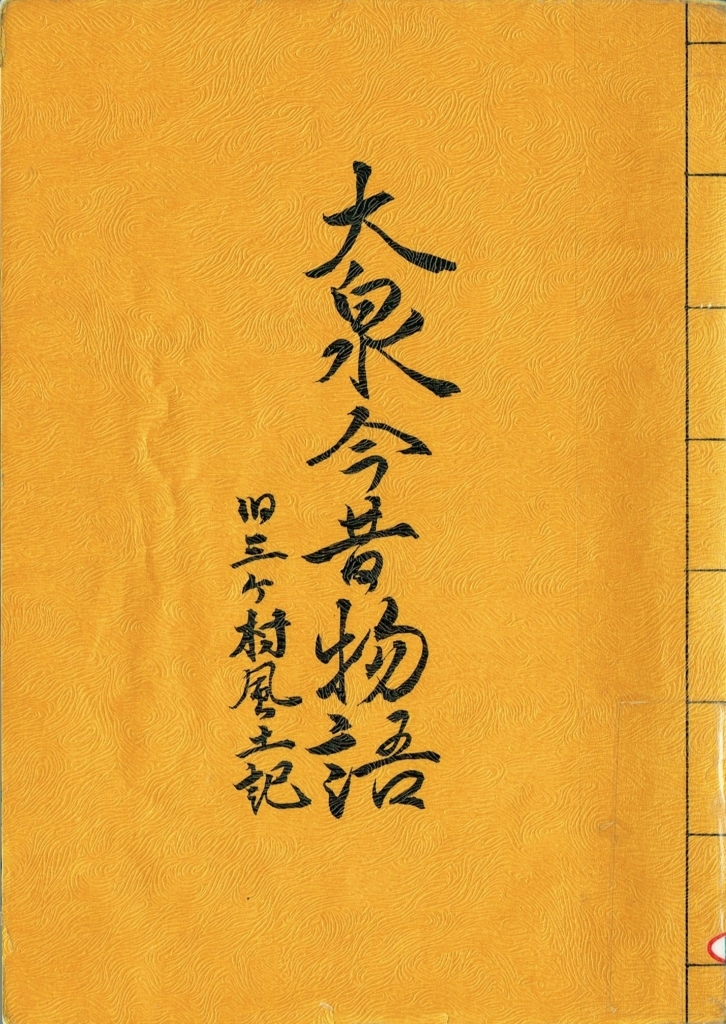 大泉今昔物語
旧三ケ村風土記